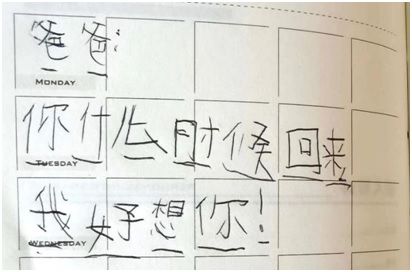 爸爸:
MONDAY
你什么时候回来
TUESDAY
我好想你!
WEDNESDAY